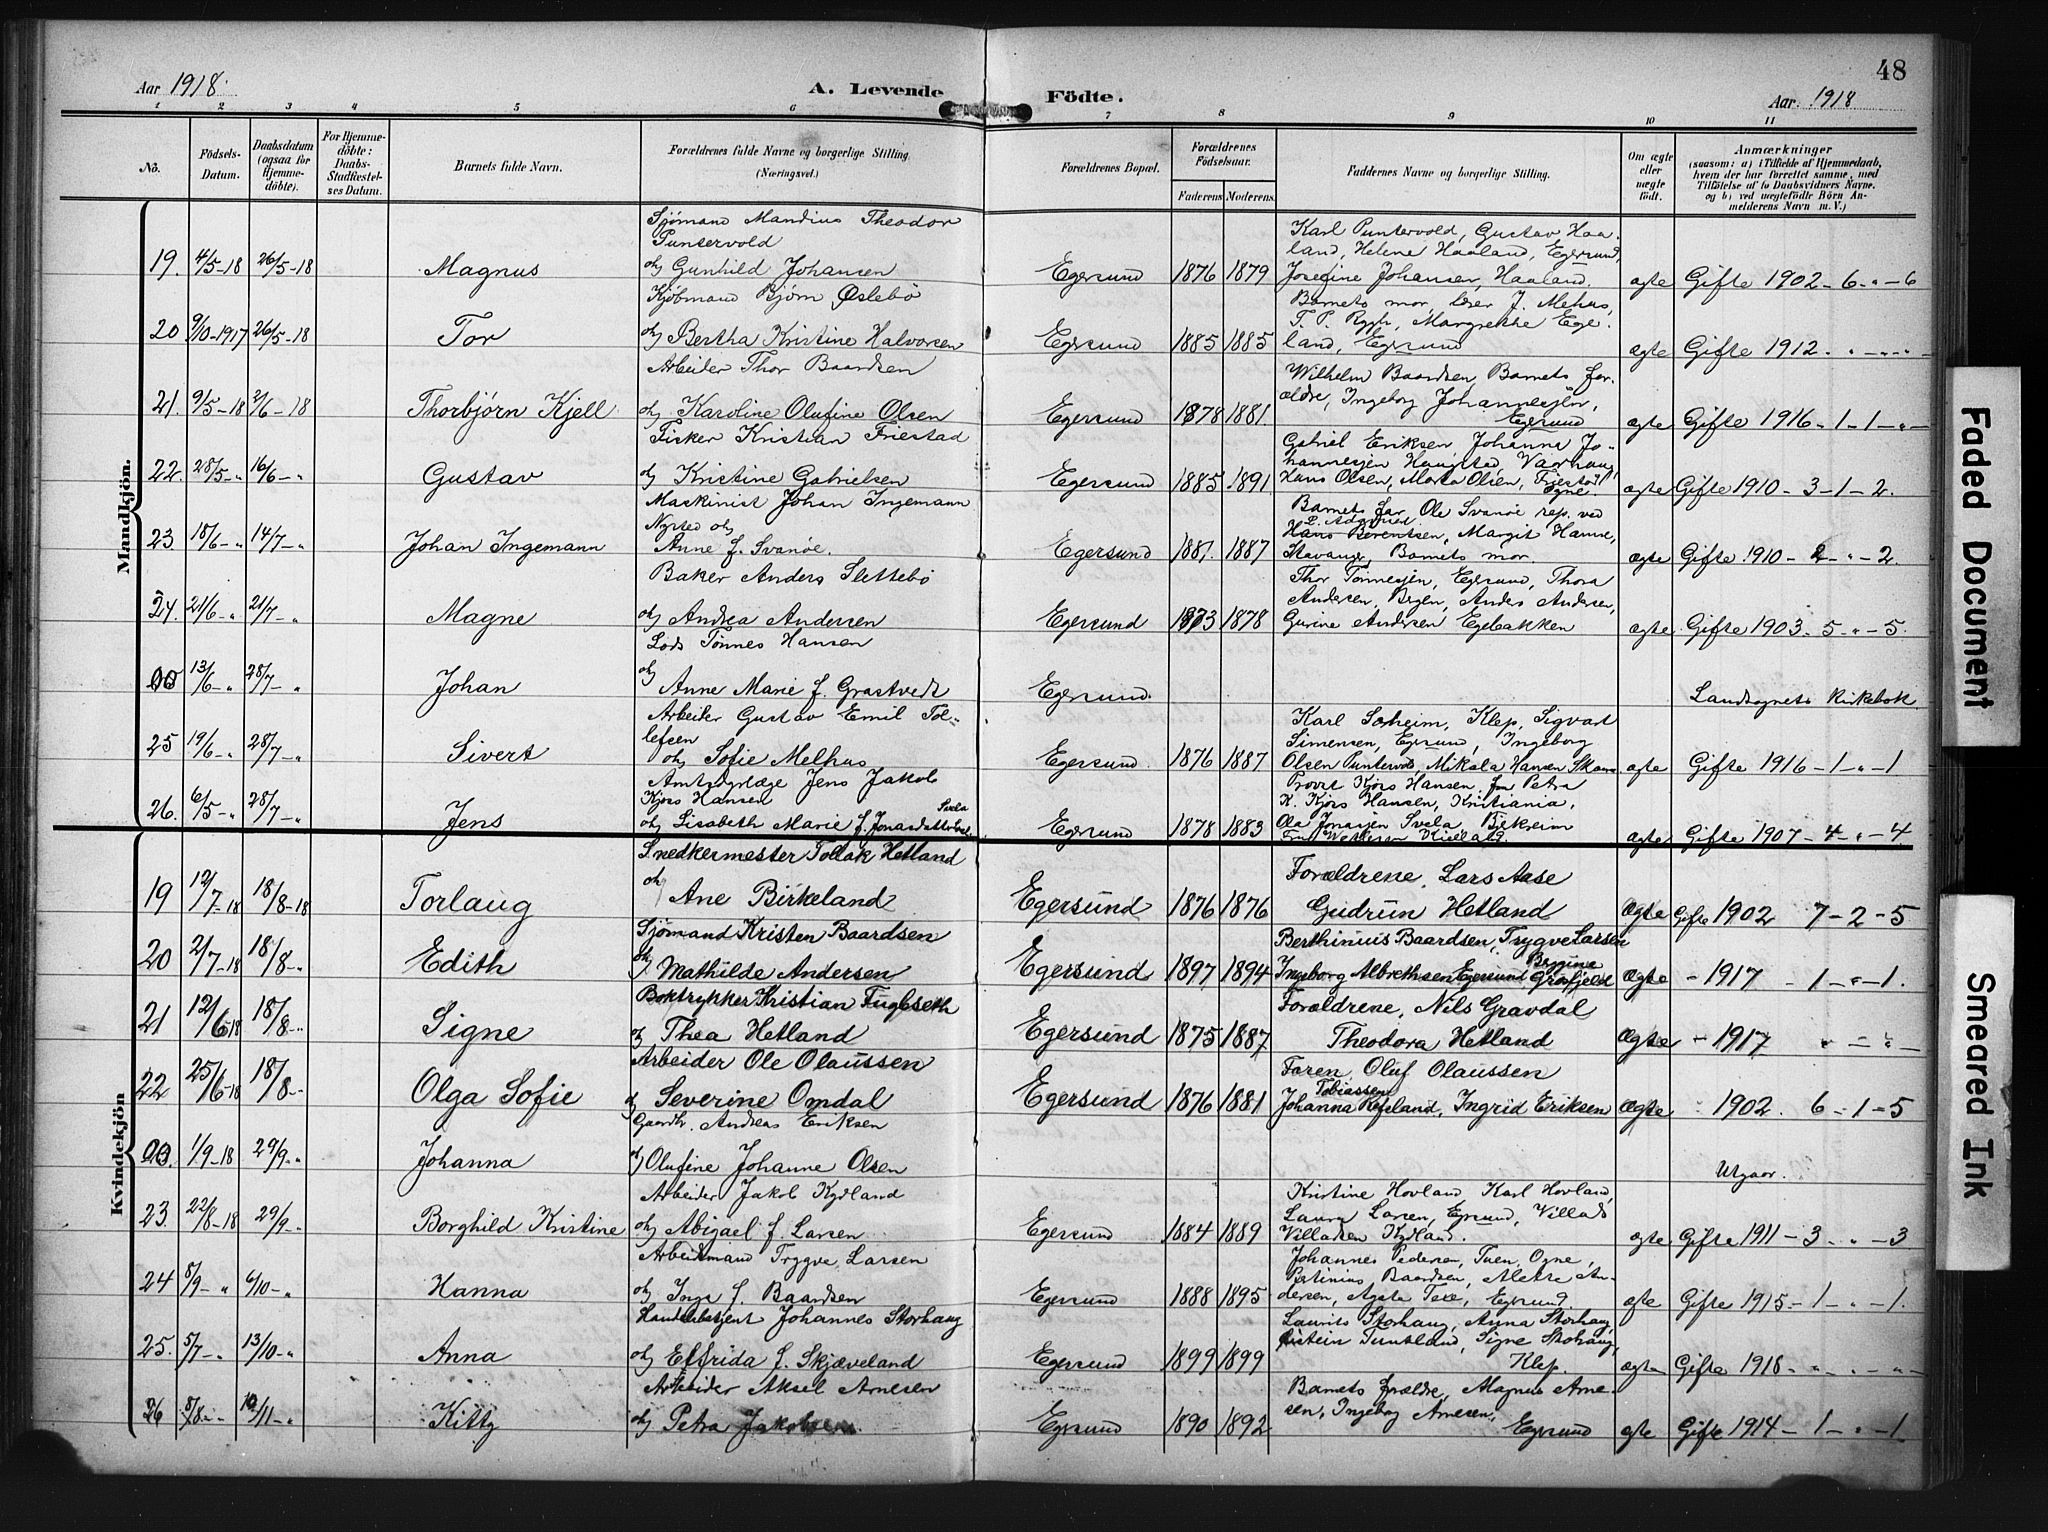 48
Aar 1918. A. Levende Födte. Aar. 1918
1 2 3 4 5 6 7 8 9 10 11
No. Födsels-Datum. Daabsdatum (ogsaa for Hjemmedöbte). For Hjemmedöbte: Daabs-Stadfæstelses Datum. Barnets fulde Navn. Forældrenes fulde Navne og borgerlige Stilling. (Næringsvei.) Forældrenes Bopæl. Forældrenes Födselsaar. Faderens Moderens. Faddernes Navne og borgerlige Stilling. Om ægte eller uægte födt. Anmærkninger (saasom: a) i Tilfælde af Hjemmedaab, hvem der har forrettet samme, med Tilföielse af to Daabsvidners Navne. og b) ved uægtefödte Börn Anmelderens Navn m. V.)
Mandkjön.
Sjömand Mandius Theodor
Puntervold
19. 4/5-18 26/5-18 Magnus og Gunhild Johansen Egersund 1876 1879
Karl Puntervold, Gustav Haa-
land, Helene Haaland, Egersund,
Josefine Johansen, Haaland. ægte Gifte 1902-6-"-6
Kjöbmand Bjørn Øslebö
20 9/10-1917 26/5-18 Tor og Bertha Kristine Halvorsen Egersund 1885 1885
Barnets mor, J. Mehus,
T. P. Margrethe Ege-
land, Egersund ægte Gifte 1912.
Arbeider Thor Baardsen
21. 9/5-18 2/6-18 Thorbjörn Kjell og Karoline Olufine Olsen Egersund 1878 1881.
Wilhelm Baardsen, Barnets for-
ældre, Ingeborg
Egersund ægte Gifte 1916-1-1-"-
Fisker Kristian Friestad
22. 28/5-" 16/6-" Gustav og Kristine Gabrielsen Egersund 1885 1891.
Gabriel Eriksen, Johanna Jo-
hannesen Haugstad, Varhaug,
Hans Olsen, Marta Olsen, Friestad,
Ogne. ægte Gifte 1910-3-1-2.
Maskinist Johan Ingemann
Nysted og
23. 18/6-" 14/7-" Johan Ingemann Anne f. Svanöe. Egersund 1881. 1887
Barnets far, Ole Svanöe rep. ved
Hans Berentsen, Margit Hanne,
Stavanger, Barnets mor. ægte Gifte 1910-2-"-2.
Baker Anders Slettebö
24. 21/6-" 21/7-" Magne og Andrea Andersen Egersund 1873 1878
Thor Tönnesen, Egersund, Thora
Andersen, Anders Andersen,
Gurine Andersen Egebakken ægte Gifte 1903-5-"-5.
Lods Tönnes Hansen
00 13/6-" 28/7-" Johan og Anne Marie f. Grastvedt Egersund. Landsognets Kirkebok
Arbeider Gustav Emil Tol-
lefsen
25 19/6-" 28/7-" Sivert og Sofie Melhus Egersund. 1876 1887
Karl Sørheim, Klep, Sigvart
Simensen, Egersund, Ingeborg
Olsen Puntervold, Mikala Hansen ægte Gifte 1916-1-"-1
Amtsdyrlæge Jens Jakob
Kjörs Hansen
26. 6/5-" 28/7-" Jens og Lisabeth Marie f. Jonasdatter Svela Egersund 1878 1883
Provst Kjörs Hansen, fru Petra
K. Kjörs Hansen, Kristiania,
Ola Jonassen Svela, Bjerkreim
Fru Kielland. ægte Gifte 1907-4-"-4.
Kvindekjön
Snedkermester Tollak Hetland
19 12/7-18 18/8-18 Torlaug og Ane Birkeland Egersund 1876 1876
Forældrene, Lars Aase
Gudrun Hetland Ægte Gifte 1902 7-2-5
Sjömand Kristen Baardsen
20 2/7-18 18/8-" Edith og Mathilde Andersen Egersund 1897 1894
Berthinius Baardsen, Trygve Larsen
Ingeborg Albrethsen Egersund Bergine Gråfjeld Ægte " 1917 - 1-"-1.
Boktrykker Kristian Fugleseth
21 12/6-18 18/8-" Signe og Thea Hetland Egersund 1875 1887
Forældrene, Nils Gravdal
Theodora Hetland Ægte " 1917 " - " -
Arbeider Ole Olaussen
22 25/6-18 18/8-" Olga Sofie og Severine Omdal Egersund 1876 1881
Faren, Oluf Olaussen
Tobiassen
Johanna Refsland, Ingrid Eriksen Ægte " 1902. 6-1-5
Gaardbr. Andreas Eriksen
00. 1/9-18 29/9-" Johanna og Olufine Johanne Olsen Utgaar.
Arbeider Jakob Kydland
23. 22/8-18 29/9-" Borghild Kristine og Abigael f. Larsen Egersund 1884 1889
Kristine Hovland, Karl Hovland,
Laura Larsen, Egersund, Villads
Villadsen Kydland. ægte Gifte 1911-3-"-3
Arbeidsmand Trygve Larsen
24 8/9-" 6/10-" Hanna og Inga f. Baardsen Egersund 1888 1895
Johannes Pedersen, Tuen, Ogne,
Bertinius Baardsen, Metre An-
dersen, Agata Egersund. ægte Gifte 1915-1-"-1.
Handelsbetjent Johannes Storhaug
25. 5/7-" 13/10-" Anna og Elfrida f. Skjæveland Egersund 1899 1899
Laurits Storhaug, Anna Storhaug,
Tuntland, Signe Stohaug,
Klep. ægte Gifte 1918-"-"-"-
Arbeider Aksel Arnesen
26 8/8-" 10/11-" Kitty og Petra Jakobsen. Egersund 1890 1892
Barnets forældre, Magnus Arne-
sen, Ingeborg Arnesen,
Egersund ægte Gifte 1914-1-"-1.
Faded Document
Smeared Ink